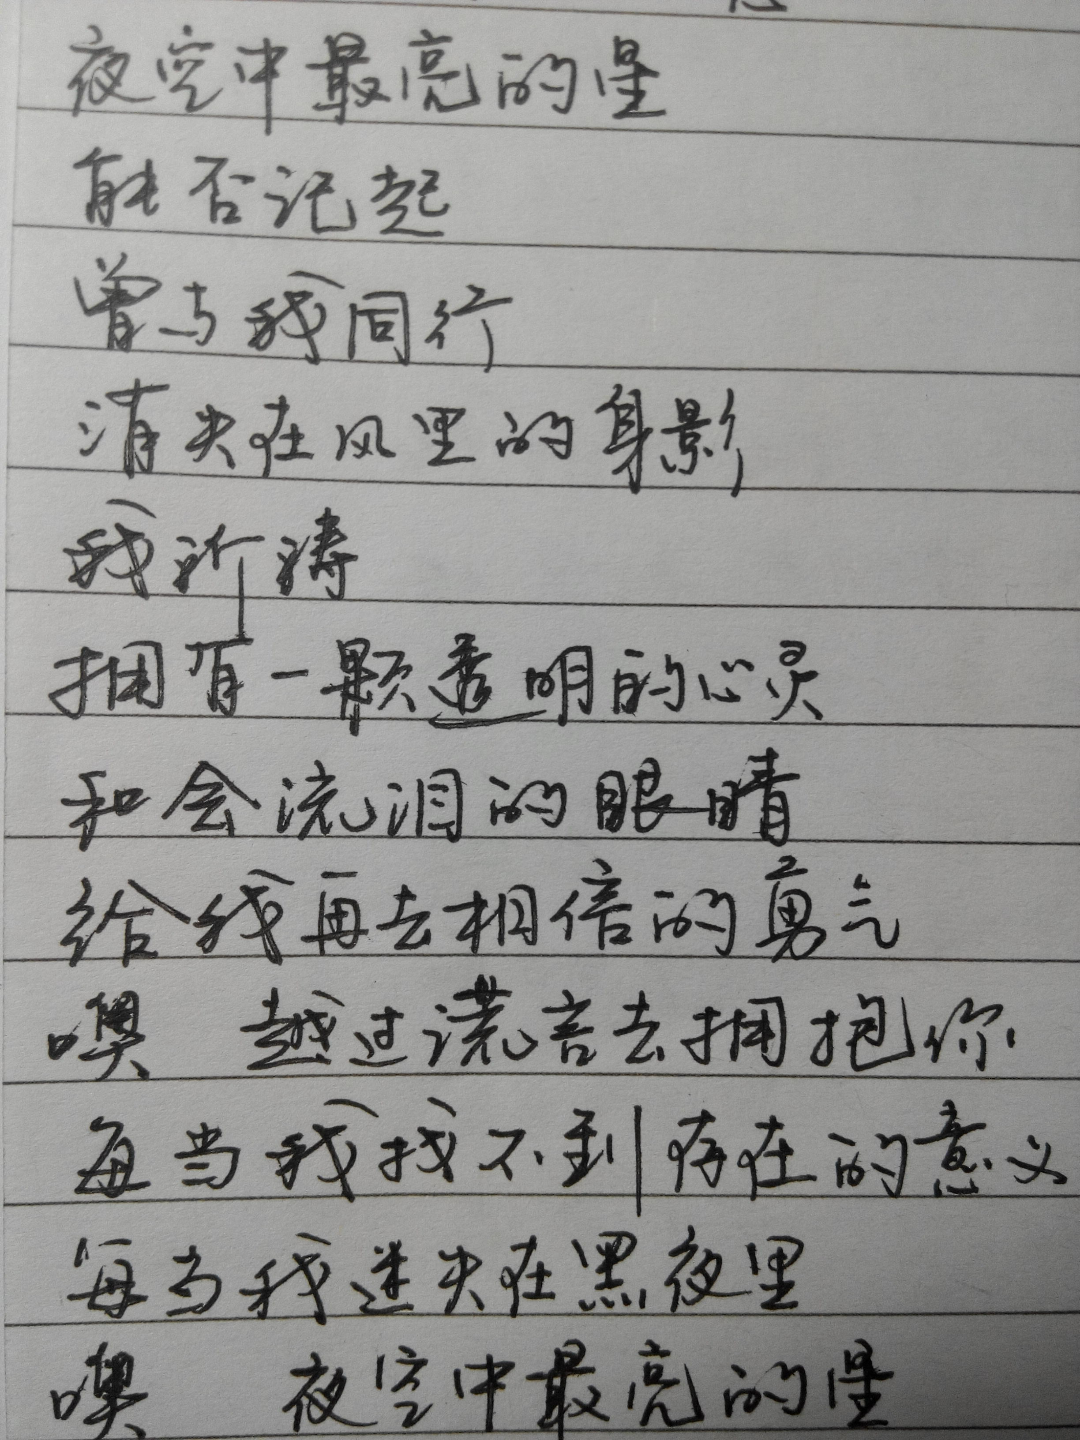 夜空中最亮的星
能否记起
曾与我同行
消失在风里的身影
我祈祷
拥有一颗透明的心灵
和会流泪的眼睛
给我再去相信的勇气
噢 越过谎言去拥抱你
每当我找不到存在的意义
每当我迷失在黑夜里
噢 夜空中最亮的星